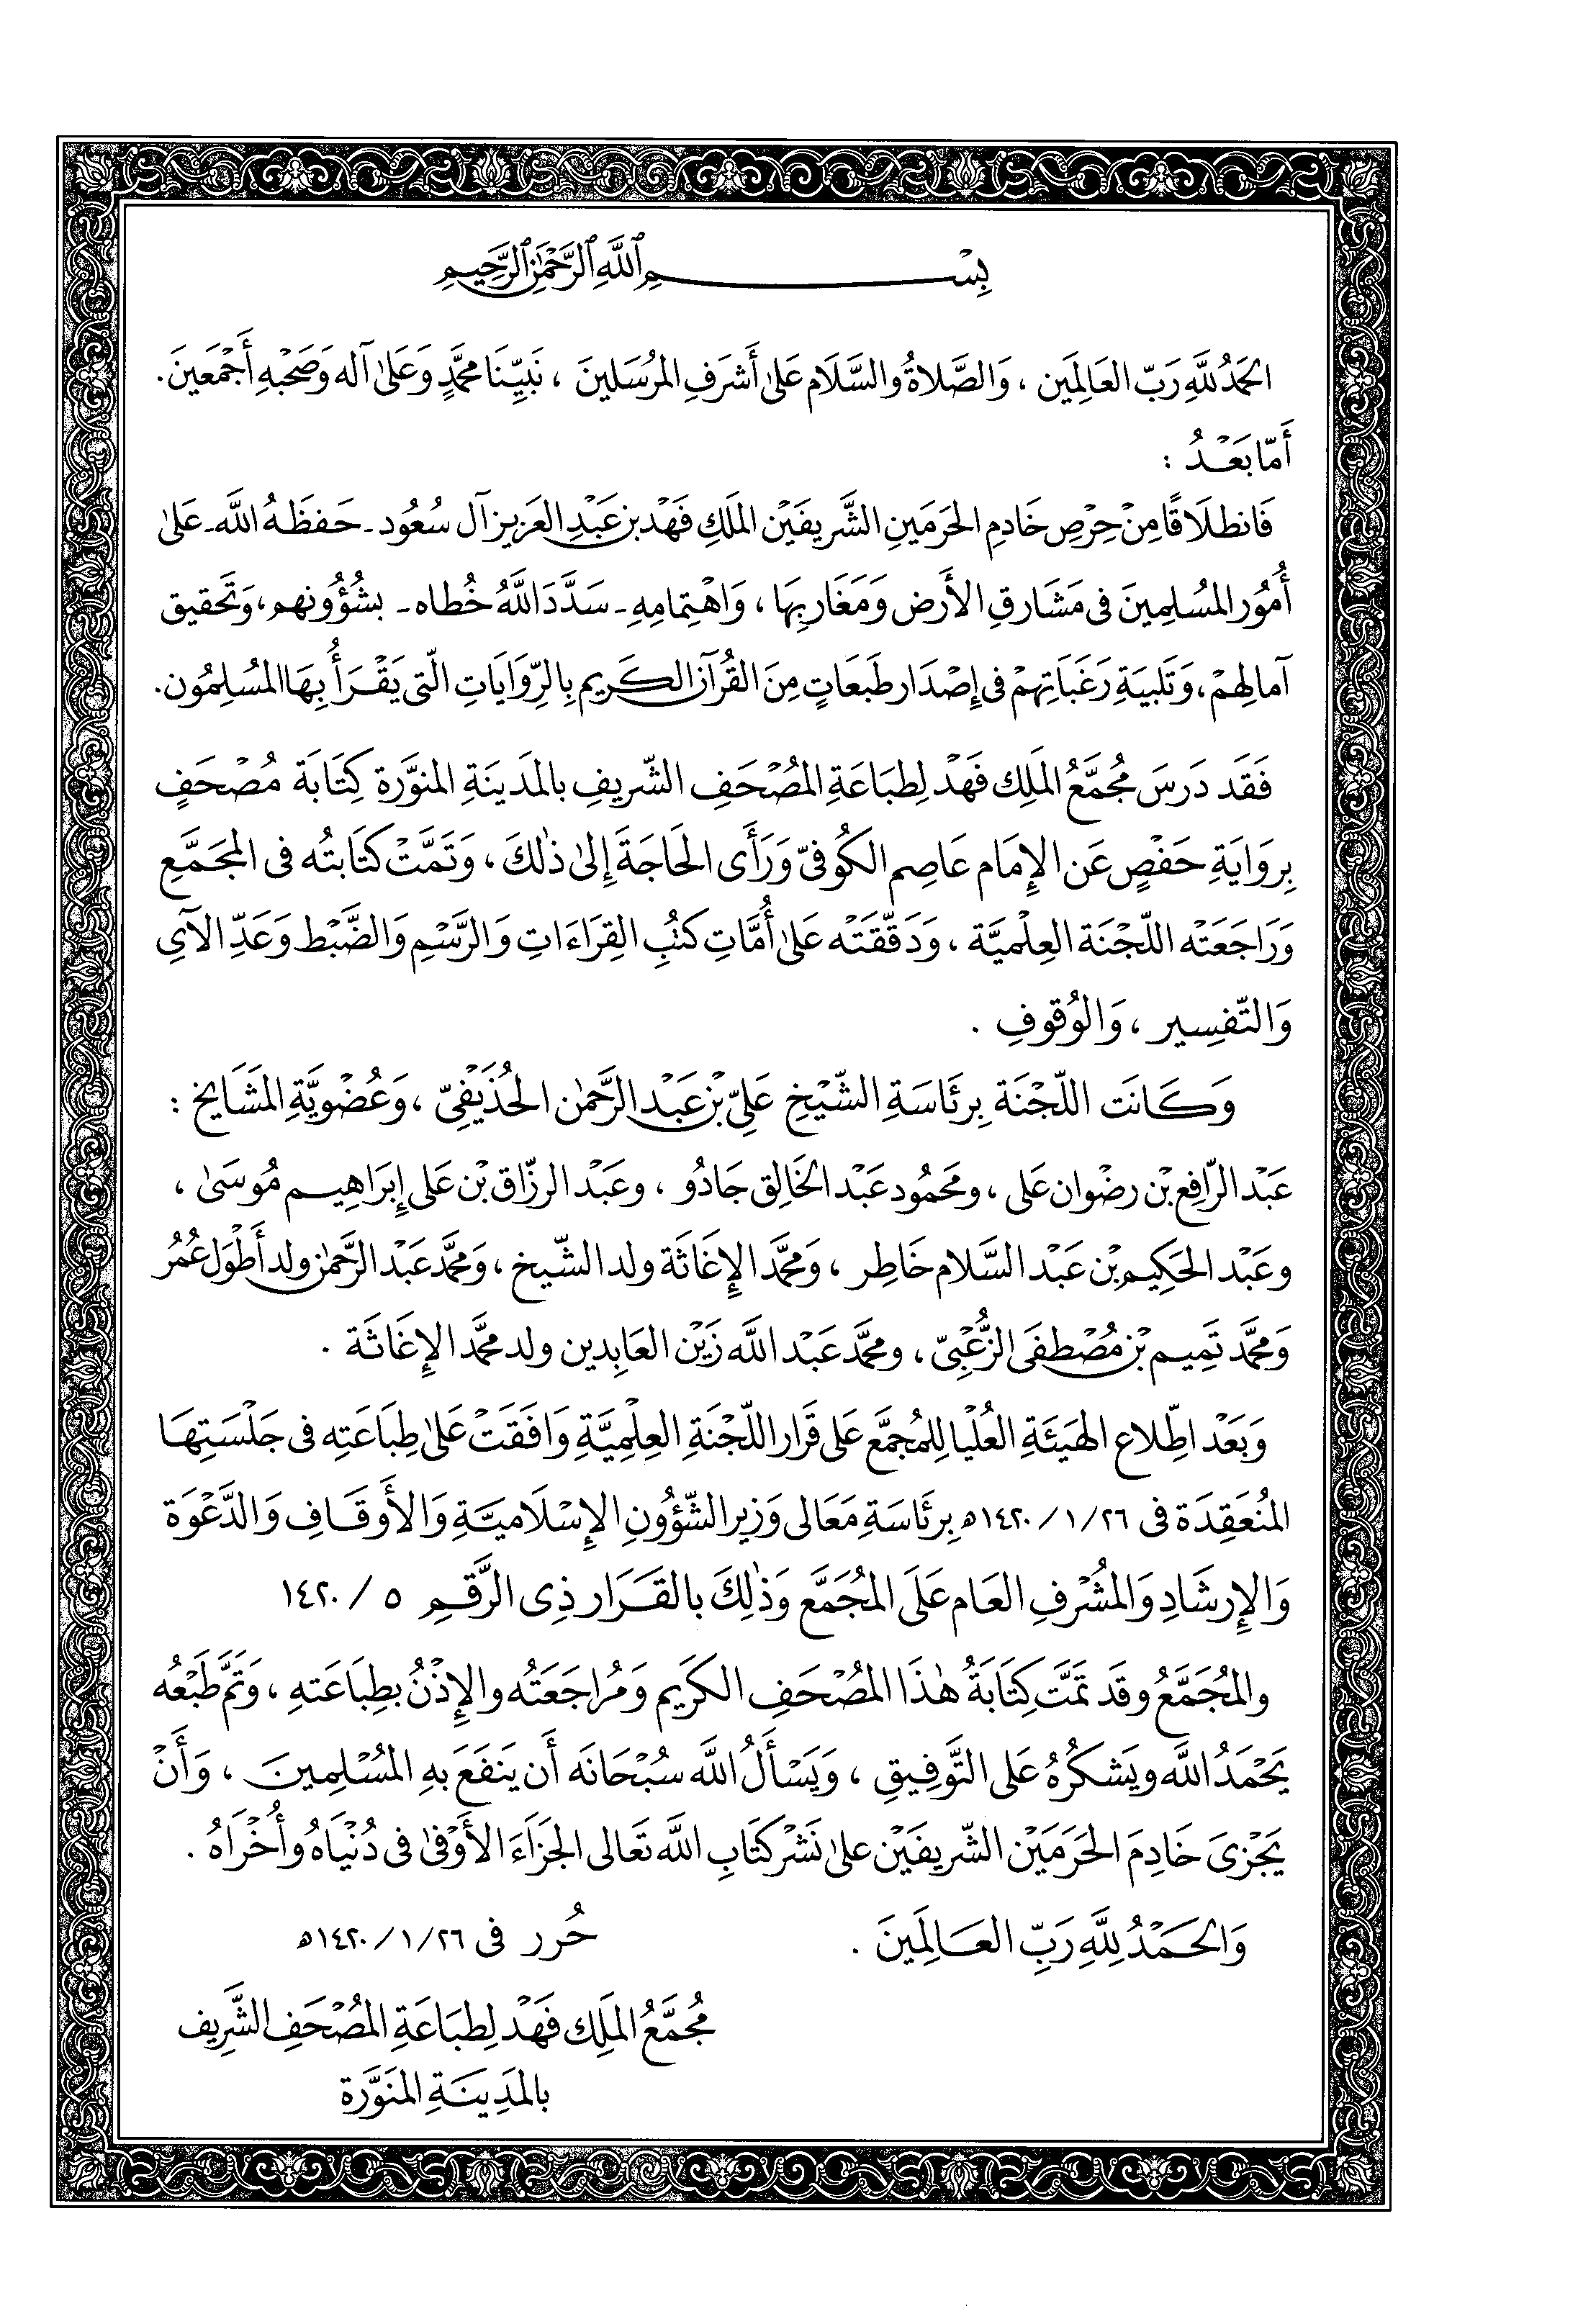 بِسْمِ ٱللَّهِ ٱلرَّحْمَٰنِ ٱلرَّحِيمِ
الحَمْدُ للَّهِ رَبِّ العَالَمِين ، وَالصَّلاةُ والسَّلَام عَلىٰ أَشرَفِ المرُسَلينَ ، نَبِيِّنَا محمَّدٍ وَعَلىٰ آله وَصَحْبهِ أَجْمَعينَ .
أَمّا بَعْدُ :
فَانطلَاقًا مِنْ حِرْصِ خَادِمِ الحَرَمَينِ الشَّريفَيْن المَلَكِ فَهْد بن عَبْدِ العَزيز آل سُعُود - حَفظَهُ اللَّه - عَلىٰ
أُمُور المسُلِمِينَ فى مَشَارقِ الأَرض وَمَغَاربِهَا ، وَاهْتِمامِهِ - سَدَّدَ اللَّهُ خُطاه - بشُؤُونهم ، وَتَحقيق
آمالِهِمْ ، وَتَلبيَةِ رَغَبَاتِهمْ فى إِصْدَار طَبَعَاتٍ مِنَ القُرآن الكَريم بِالرِّوَايَاتِ الّتى يَقْرَأُ بِهَا المُسْلِمُون .
فَقَد دَرَسَ مُجَمَّعُ المَلِك فَهَدْ لِطِبَاعَةِ المُصْحَفِ الشّريفِ بالمَدينَةِ المنوَّرة كِتَابَة مُصْحَفٍ
بِروَايَةِ حَفْصٍ عَن الإِمَام عَاصِم الكُوفىّ وَرَأَى الحَاجَةَ إِلىٰ ذٰلكَ ، وَتَمَّتْ كتَابتُه فى المجَمَّعِ
وَرَاجَعَتْه اللّجْنَة العِلْميَّة ، وَدَقّقَتْه عَلىٰ أُمَّاتِ كتُبِ القِرَاءَاتِ وَالرَّسْمِ وَالضَّبْط وَعَدِّ الآىِ
وَالتّفسِير ، وَالوُقوفِ .
وَكَانَت اللّجْنَة بِرئَاسَةِ الشّيْخِ عَلِىّ بْن عَبْد الرَّحمٰن الحُذَيفِىّ ، وَعُضْويَّةِ المَشَايخ :
عَبْد الرّافِع بْن رضْوان عَلى ، ومَحمُود عَبْد الخَالِق جَادُو ، وعَبْد الرزّاق بْن عَلى إِبرَاهِيم مُوسَىٰ ،
وعَبْد الحَكِيم بْن عَبْد السَّلام خَاطِر ، وَمحمَّد الإِغَاثَة ولد الشّيخ ، وَمحمَّد عَبْد الرَّحمٰن ولد أَطْوَل عُمُر
وَمحمَّد تَمِيم بْن مُصْطفَى الزُّعْبِىّ ، ومحمَّد عَبْد اللَّه زَيْن العَابِدين ولد محمَّد الإِغَاثَة .
وَبَعْد اطِّلاع الهَيَئَةِ العُلْيا لِلمُجمَّع عَلى قَرَار اللّجْنَةِ العِلْمِيَّةِ وَافَقَتْ عَلىٰ طِبَاعَتِه فى جَلْسَتِهَا
المنُعَقِدَة فى ٢٦ / ١ / ١٤٢٠ه بِرئَاسَةِ مَعَالى وَزير الشّؤُونِ الإِسْلَاميَّةِ وَالأَوقَافِ وَالدَّعْوَة
وَالإِرشَادِ وَالمُشْرفِ العَام عَلَى المُجَمَّع وَذٰلِكَ بالقَرَار ذِى الرَّقْمِ ٥ / ١٤٢٠
والمُجَمَّعُ وقَد تمَّتَ كِتَابَةُ هٰذَا المُصْحَفِ الكَرَيم وَمُراجَعَتُه والإِذْنُ بطِبَاعَتهِ ، وَتَمَّ طَبْعُه
يَحْمَدُ اللَّه ويَشكرُهُ عَلى التَّوفِيقِ ، وَيَسْأَلُ اللَّه سُبْحَانَه أَن يَنفَعَ بهِ المُسْلِمينَ ، وَأَنْ
يَجْزىَ خَادِمَ الحَرَمَيْن الشّريفَيْن علىٰ نَشْر كتَابِ اللَّه تَعَالى الجَزَاءَ الأَوْفىٰ فى دُنْيَاهُ وأُخْرَاهُ .
وَالحَمْدُ لِلَّهِ رَبِّ العَالَمِينَ . حُرر فى ٢٦ / ١ / ١٤٢٠ه
مُجَمَّعُ المَلِك فَهْد لِطبَاعَةِ المُصْحَفِ الشَّرِيف
بالمَدِينَةِ المنَوَّرة